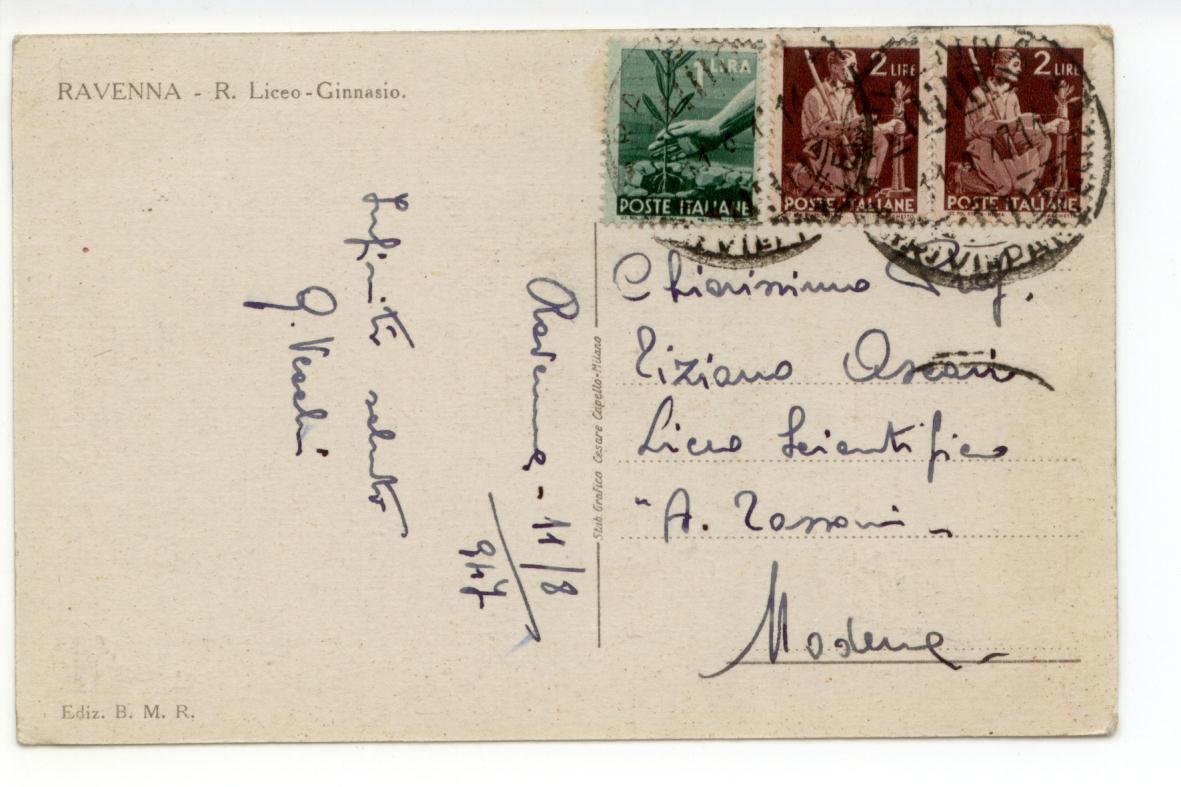 RAVENNA - R. Liceo-Ginnasio.
1 LIRA
POSTE ITALIANE
2 LIRE
POSTE ITALIANE
2 LIRE
POSTE ITALIANE
Infiniti saluti
G. Vecchi
Ravenna - 11/8
947
Stab. Grafico Cesare Capello-Milano
Chiarissimo Prof.
Tiziano Ascari
Liceo Scientifico
"A. Tassoni"
Modena
Ediz. B. M. R.